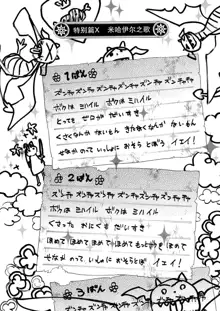 特别篇X 米哈伊尔之歌
1ばん
ズンチャ ズンチャ ズンチャ ズンチャ ズンチャチャ
ボクは ミハイル ボクは ミハイル
とっても ゼロが だいすき
くさくなんか ないもん きたなくなんか ないもん
せなかのって いっしょに おそらとぼう イエイ!
2ばん
ズンチャ ズンチャ ズンチャ ズンチャ ズンチャチャ
ボクは ミハイル ボクは ミハイル
くさった おにくに だいすき
ほめて ほめて ほめて ほめて もっと ほめて
せなかのって いっしょに おそらとぼう イエイ!
3ばん
ズンチャ ズンチャ ズンチャ ズンチャ ズンチャチャ